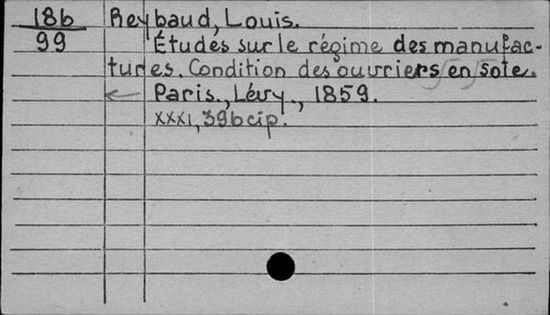 186 Reybaud, Louis.
99 Études sur le régime des manufac-
tures. Condition des ouvriers en soie.
← Paris., Lévy., 1859.
XXXI, 396 cip.